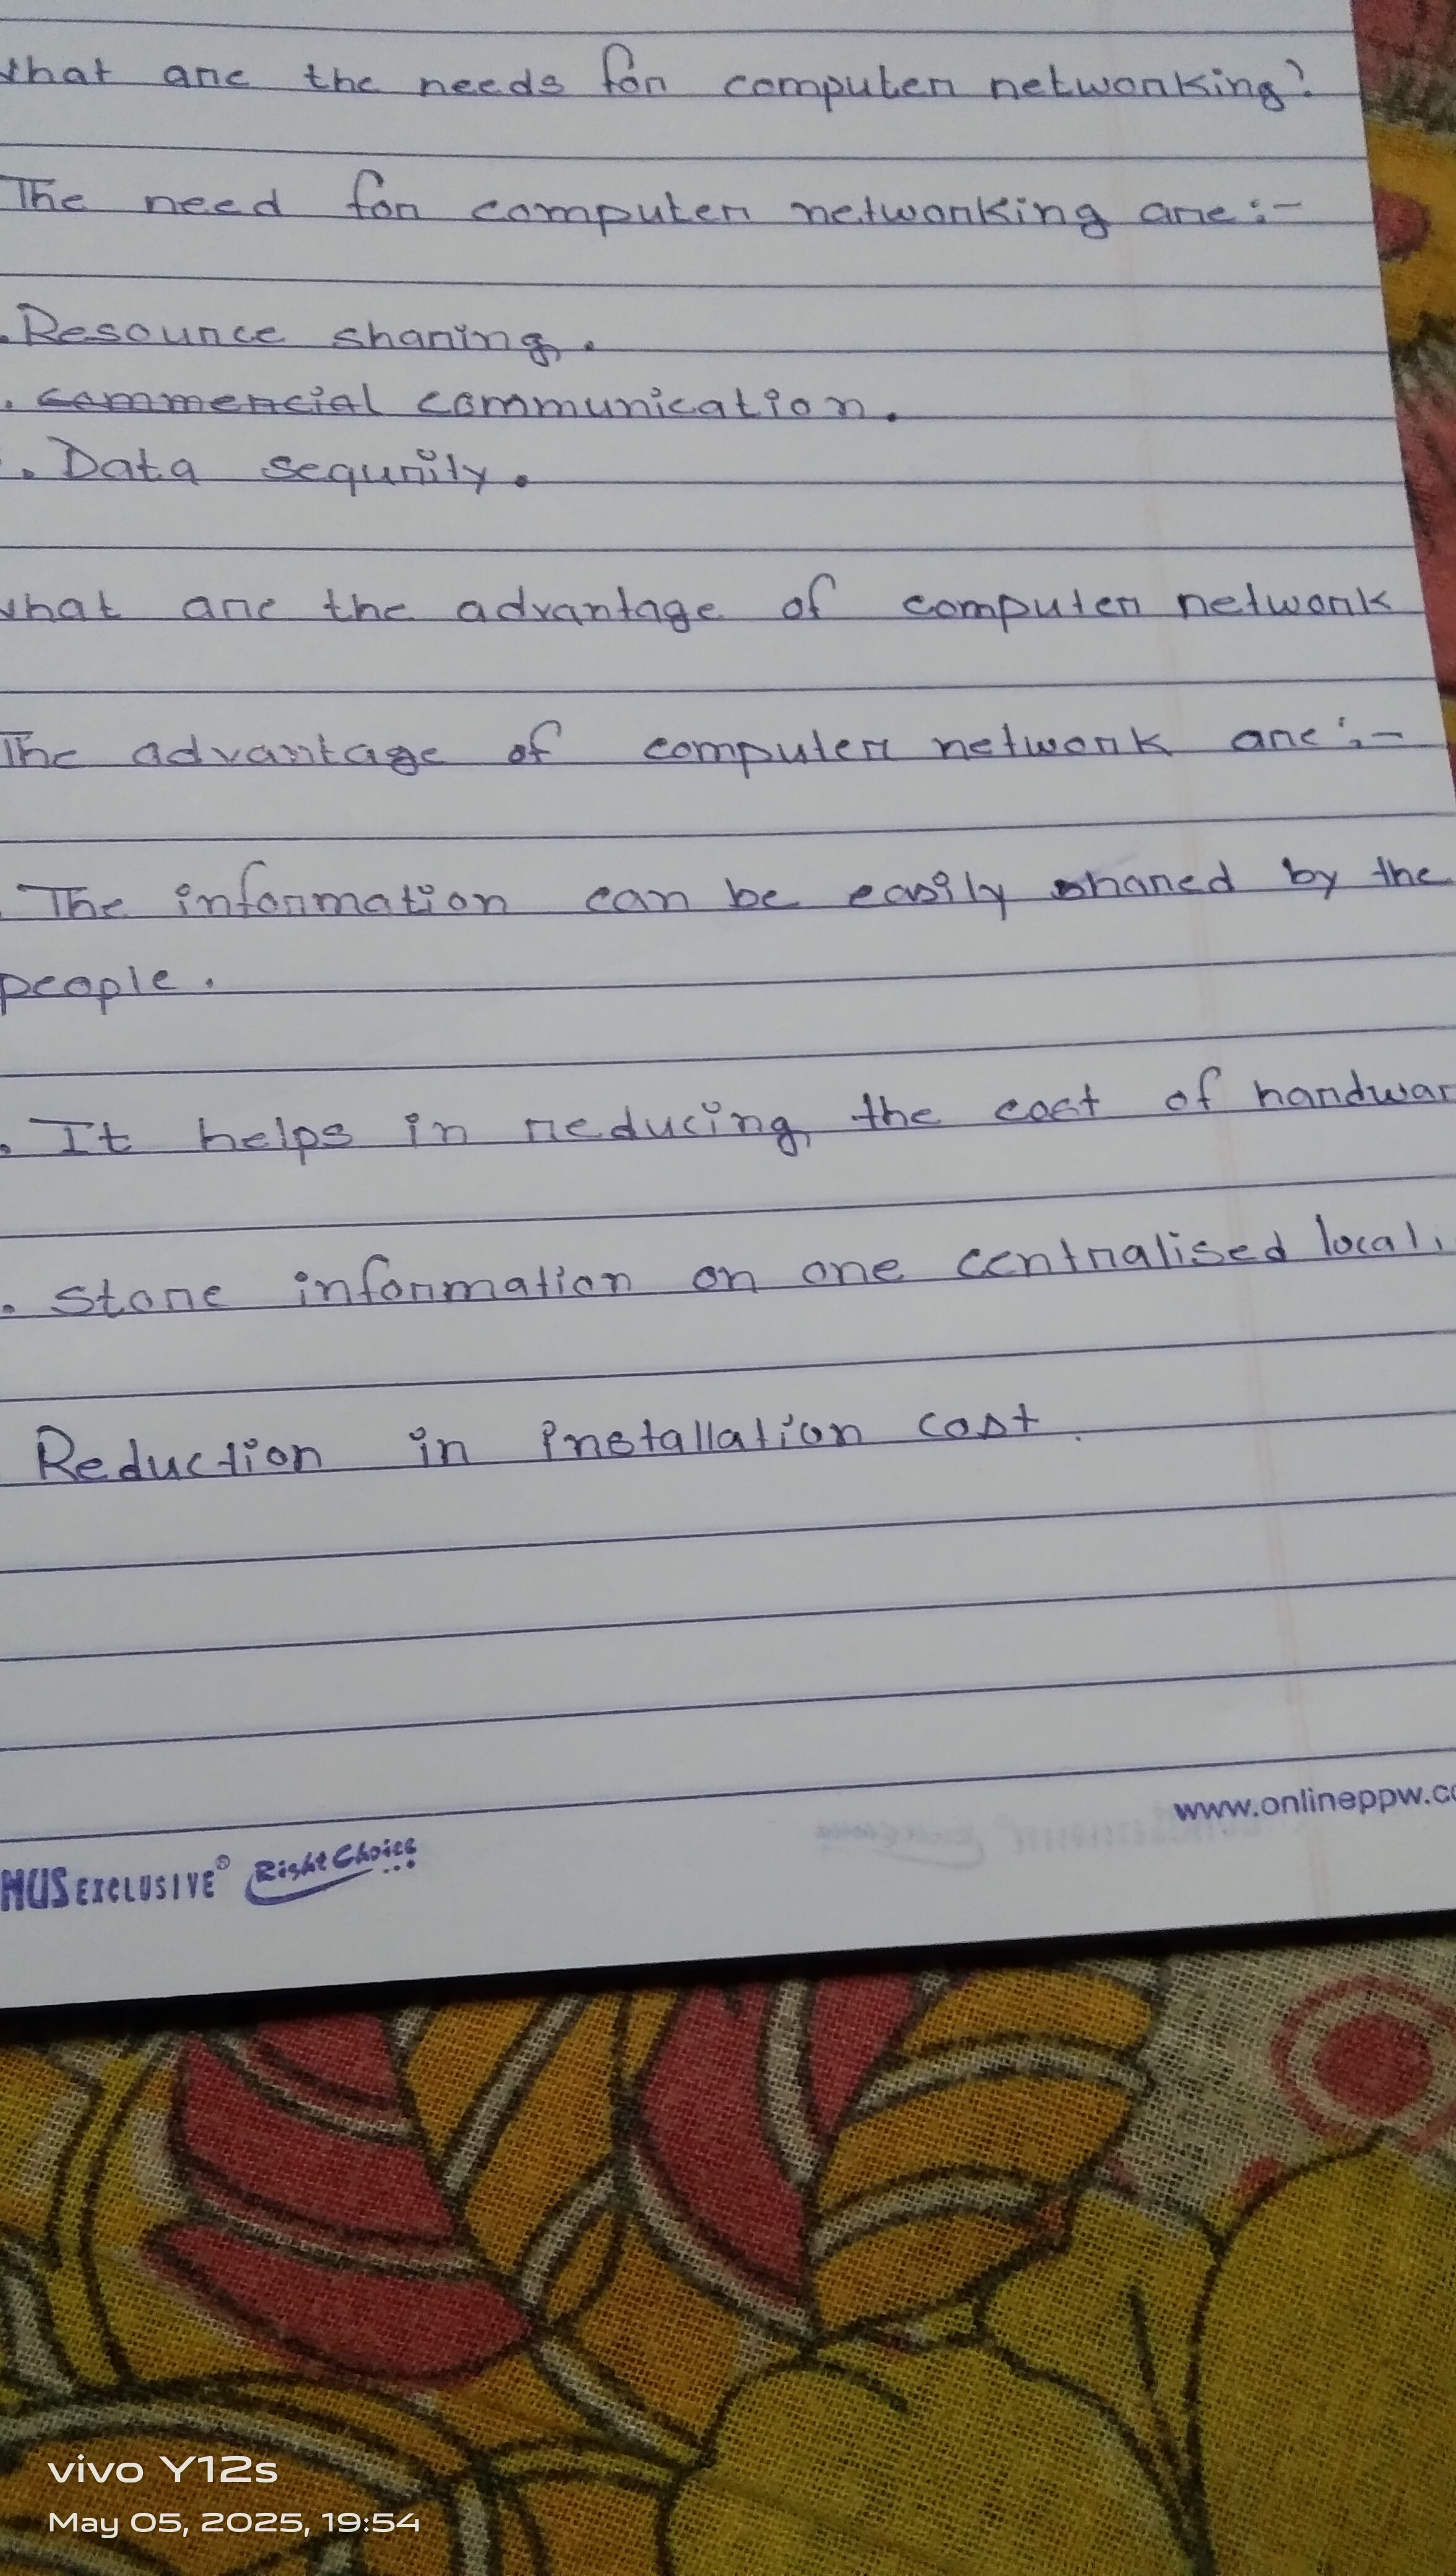 what are the needs for computer networking?
The need for computer networking are:-
. Resource sharing.
. commercial communication.
. Data sequrity.
what are the advantage of computer network
The advantage of computer network are:-
. The information can be easily shared by the
people.
. It helps in reducing the cost of hardwar
. Store information on one centralised local
Reduction in installation cost.
www.onlineppw.co
EXCLUSIVE® Right Choice...
vivo Y12s
May 05, 2025, 19:54